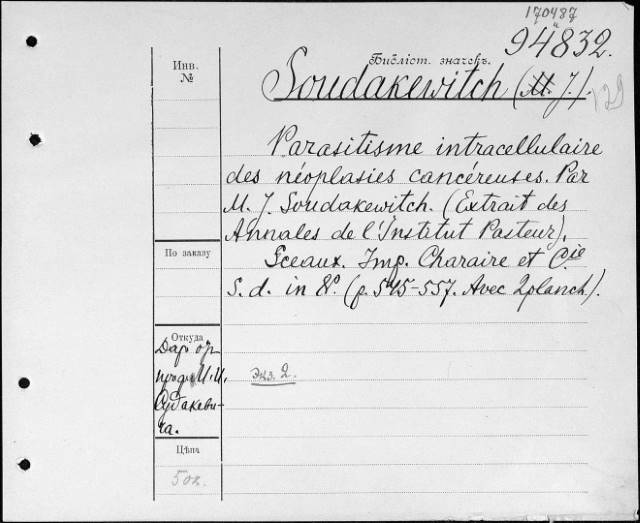 170487
94832.
Библіот. значекъ.
Инв.
№
Soudakewitch (M. J.).
129
Parasitisme intracellulaire
des néoplasies cancéreuses. Par
M. J. Soudakewitch. (Extrait des
Annales de l'Institut Pasteur).
Sceaux. Imp. Charaire et Cie
S. d. in 8º. (p. 545-557. Avec 2 planch).
По заказу
Откуда
Дар. ор.
проф. И. И.
Судакеви-
ча.
экз. 2.
Цѣна
50к.